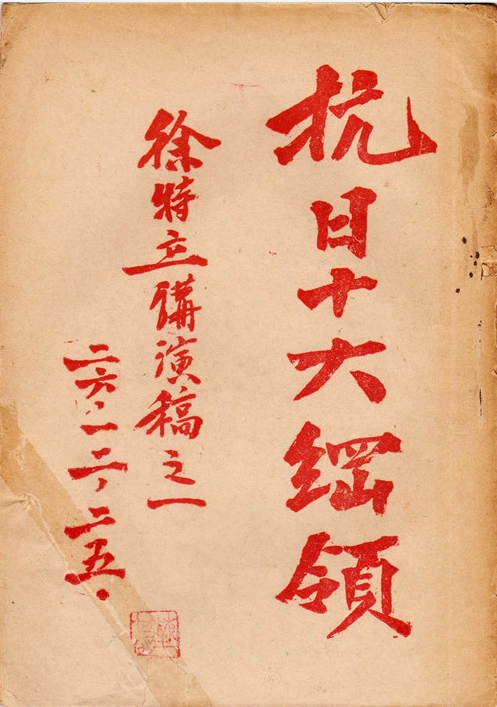 抗日十大綱領
徐特立講演稿之一
二六·一二·二五·